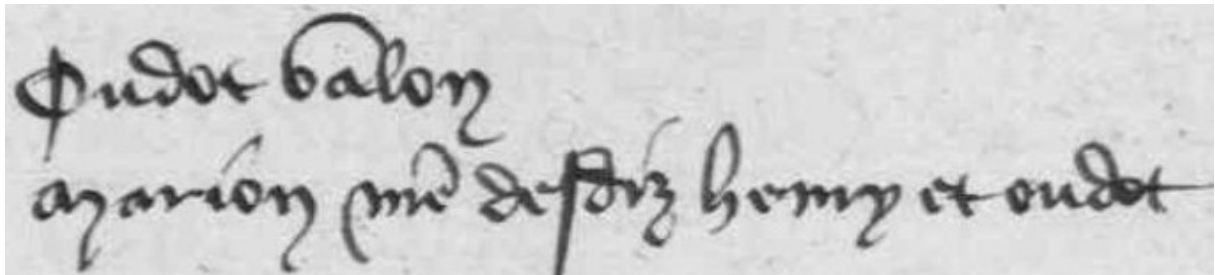 Oudot valon
marion mē desdiz henry et oudot